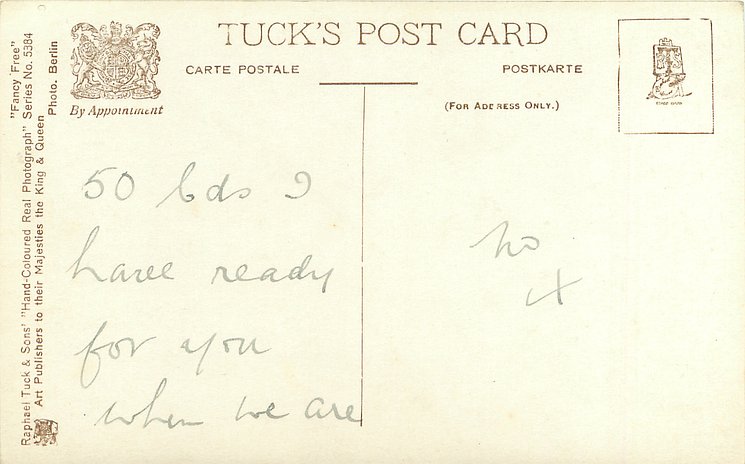 TUCK'S POST CARD
CARTE POSTALE
POSTKARTE
By Appointment
(FOR ADDRESS ONLY.)
"Fancy Free"
Raphael Tuck & Sons' "Hand-Coloured Real Photograph" Series No. 5384
Art Publishers to their Majesties the King & Queen
Photo. Berlin
50 bds I
have ready
for you
when we are